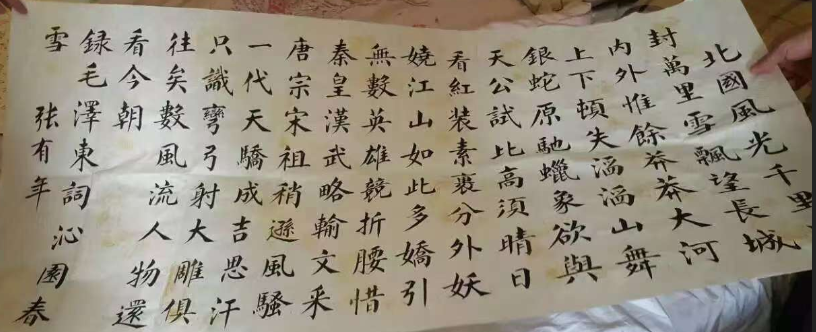 北國風光千里
封萬里雪飄望長城
內外惟餘莽莽大河
上下頓失滔滔山舞
銀蛇原馳蠟象欲與
天公試比高須晴日
看紅装素裹分外妖
嬈江山如此多嬌引
無數英雄競折腰惜
秦皇漢武略輸文采
唐宗宋祖稍遜風騷
一代天驕成吉思汗
只識彎弓射大雕俱
往矣數風流人物還
看今朝
録毛澤東詞沁園春
雪
张有年